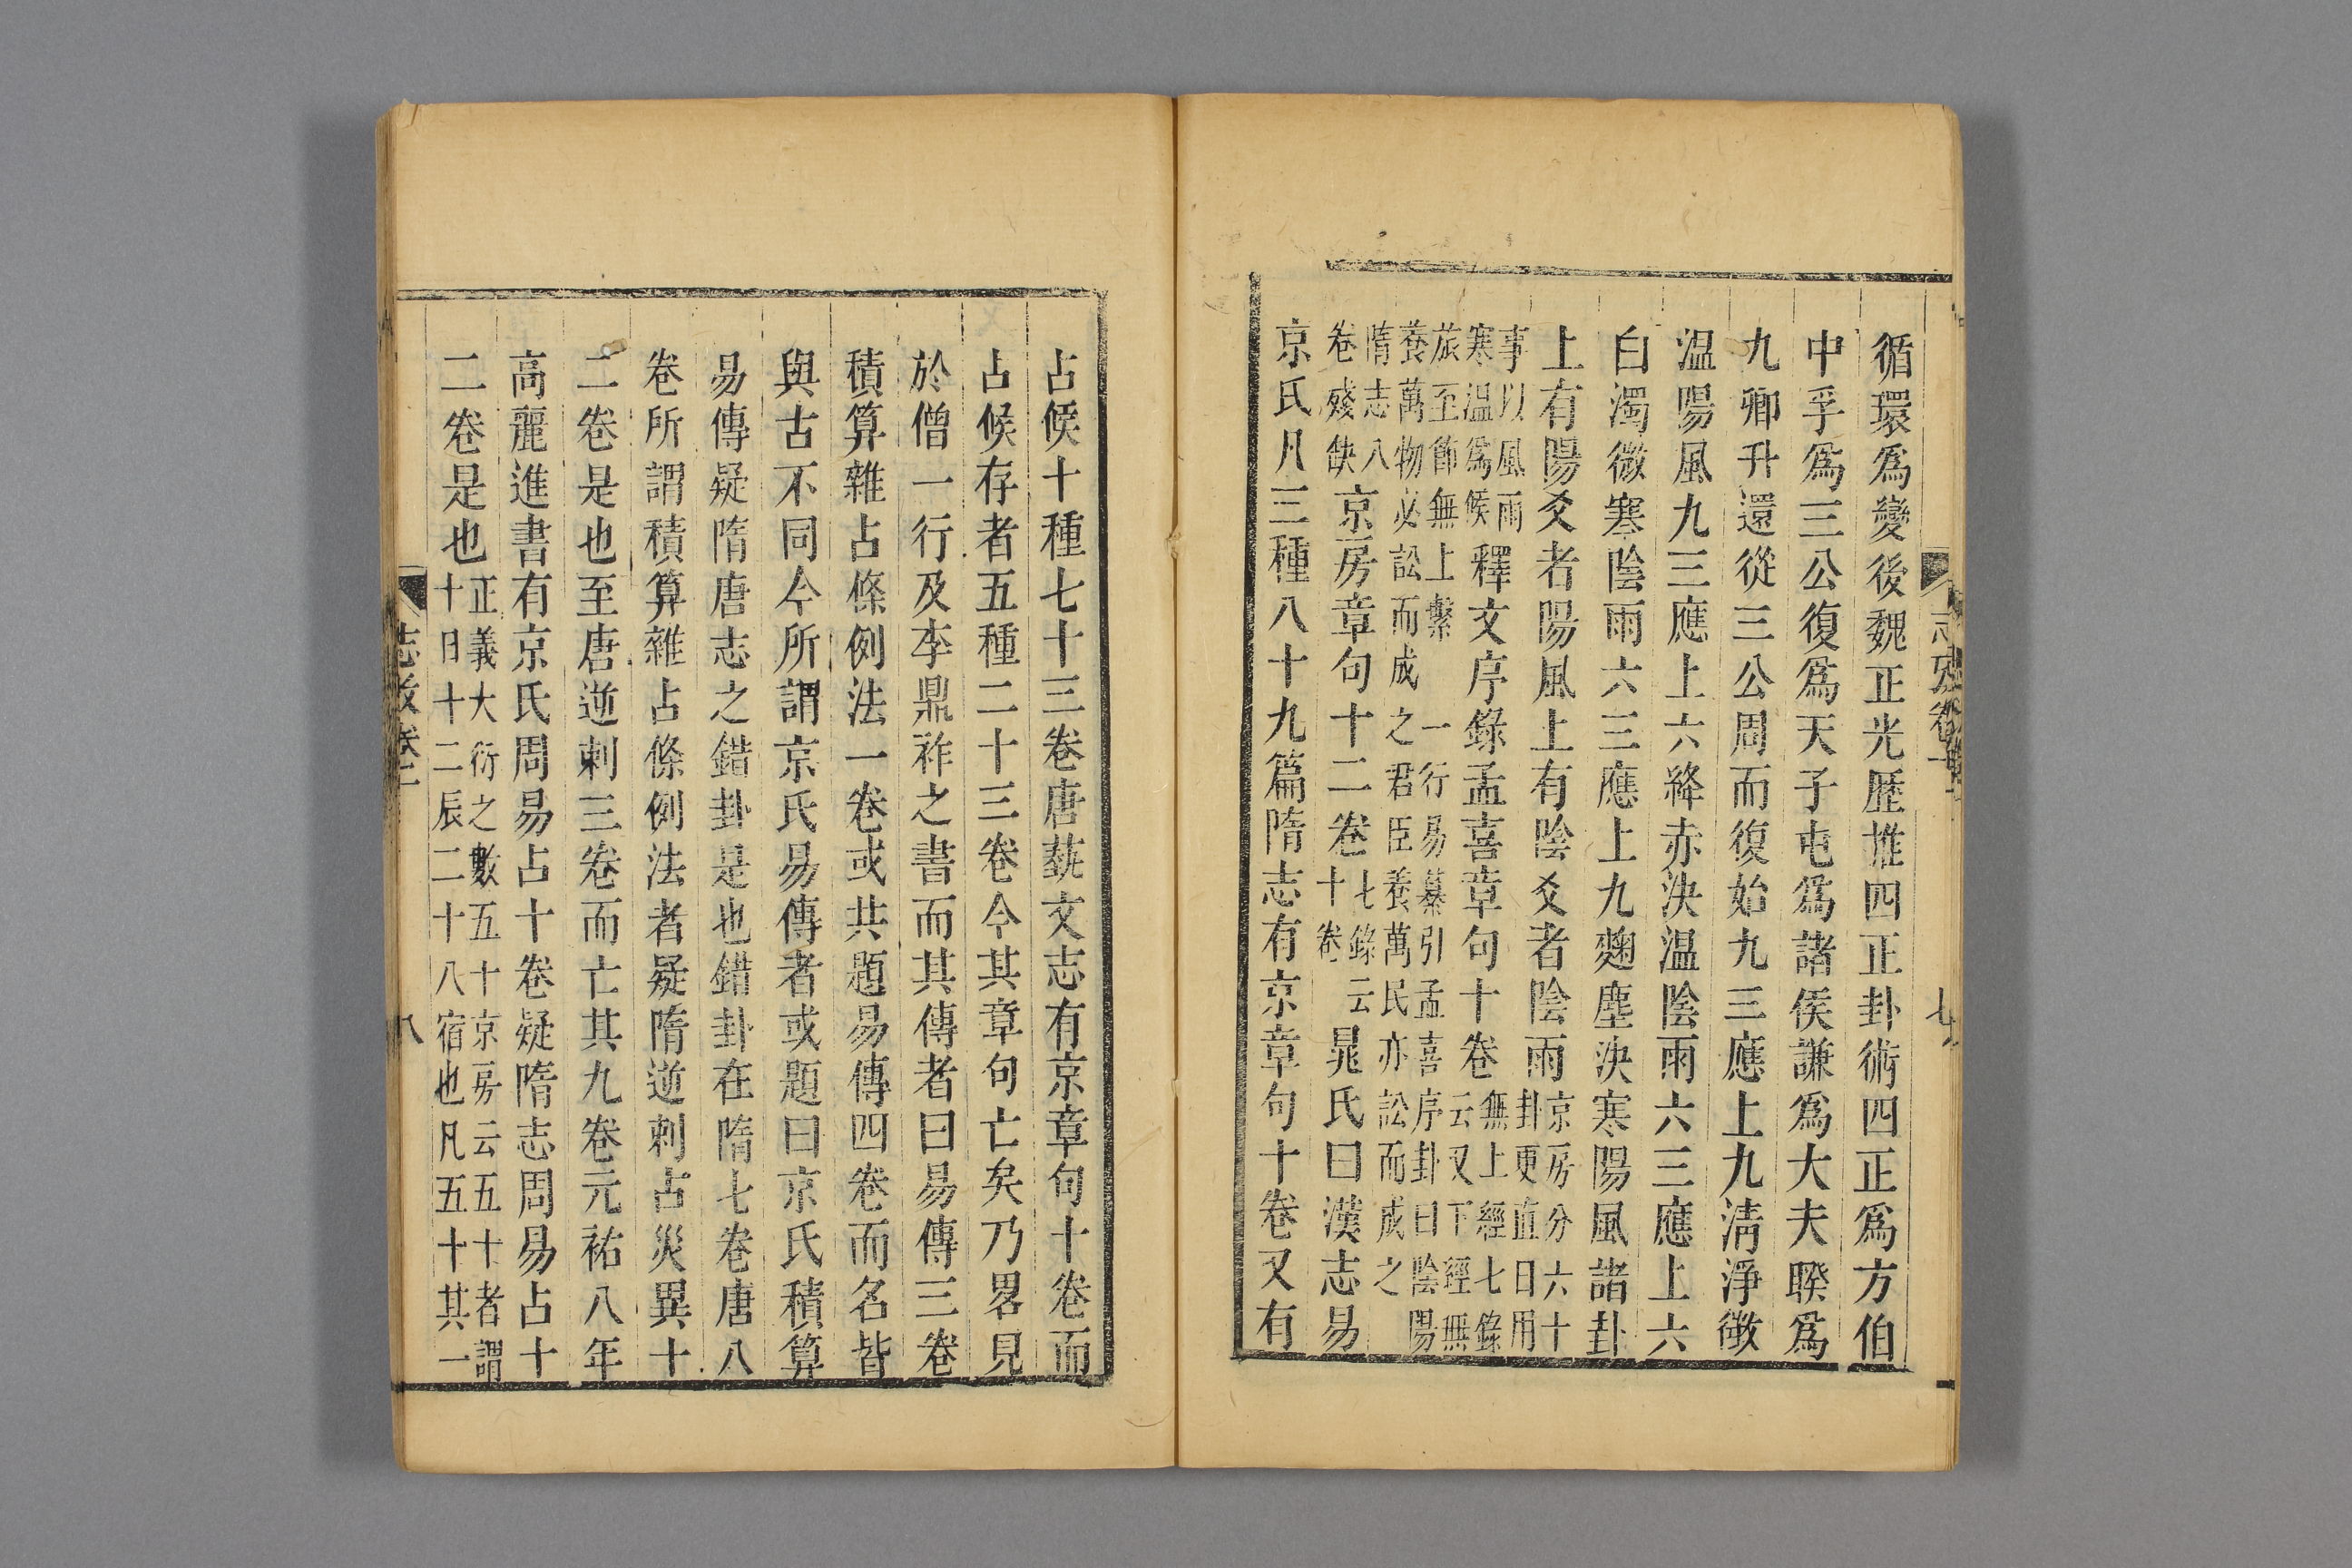 循環爲變後魏正光歷推四正卦術四正爲方伯
中孚爲三公復爲天子屯爲諸侯謙爲大夫睽爲
九卿升還從三公周而復始九三應上九淸淨微
温陽風九三應上六絳赤決温陰雨六三應上六
白濁微寒陰雨六三應上九麴塵決寒陽風諸卦
上有陽爻者陽風上有陰爻者陰雨京房分六十卦更直日用
事以風雨寒温爲候釋文序錄孟喜章句十卷無上經七錄云又下經無
旅至節無上繫一行易纂引孟喜序卦曰陰陽養萬物必訟而成之君臣養萬民亦訟而成之
隋志八卷殘缺京房章句十二卷七錄云十卷晁氏曰漢志易
京氏凡三種八十九篇隋志有京章句十卷又有
占候十種七十三卷唐蓺文志有京章句十卷而
占候存者五種二十三卷今其章句亡矣乃畧見
於僧一行及李鼎祚之書而其傳者曰易傳三卷
積算雜占條例法一卷或共題易傳四卷而名皆
與古不同今所謂京氏易傳者或題曰京氏積算
易傳疑隋唐志之錯卦是也錯卦在隋七卷唐八
卷所謂積算雜占條例法者疑隋逆刺占災異十
二卷是也至唐逆刺三卷而亡其九卷元祐八年
高麗進書有京氏周易占十卷疑隋志周易占十
二卷是也正義大衍之數五十京房云五十者謂十日十二辰二十八宿也凡五十其一
志攷卷一 八